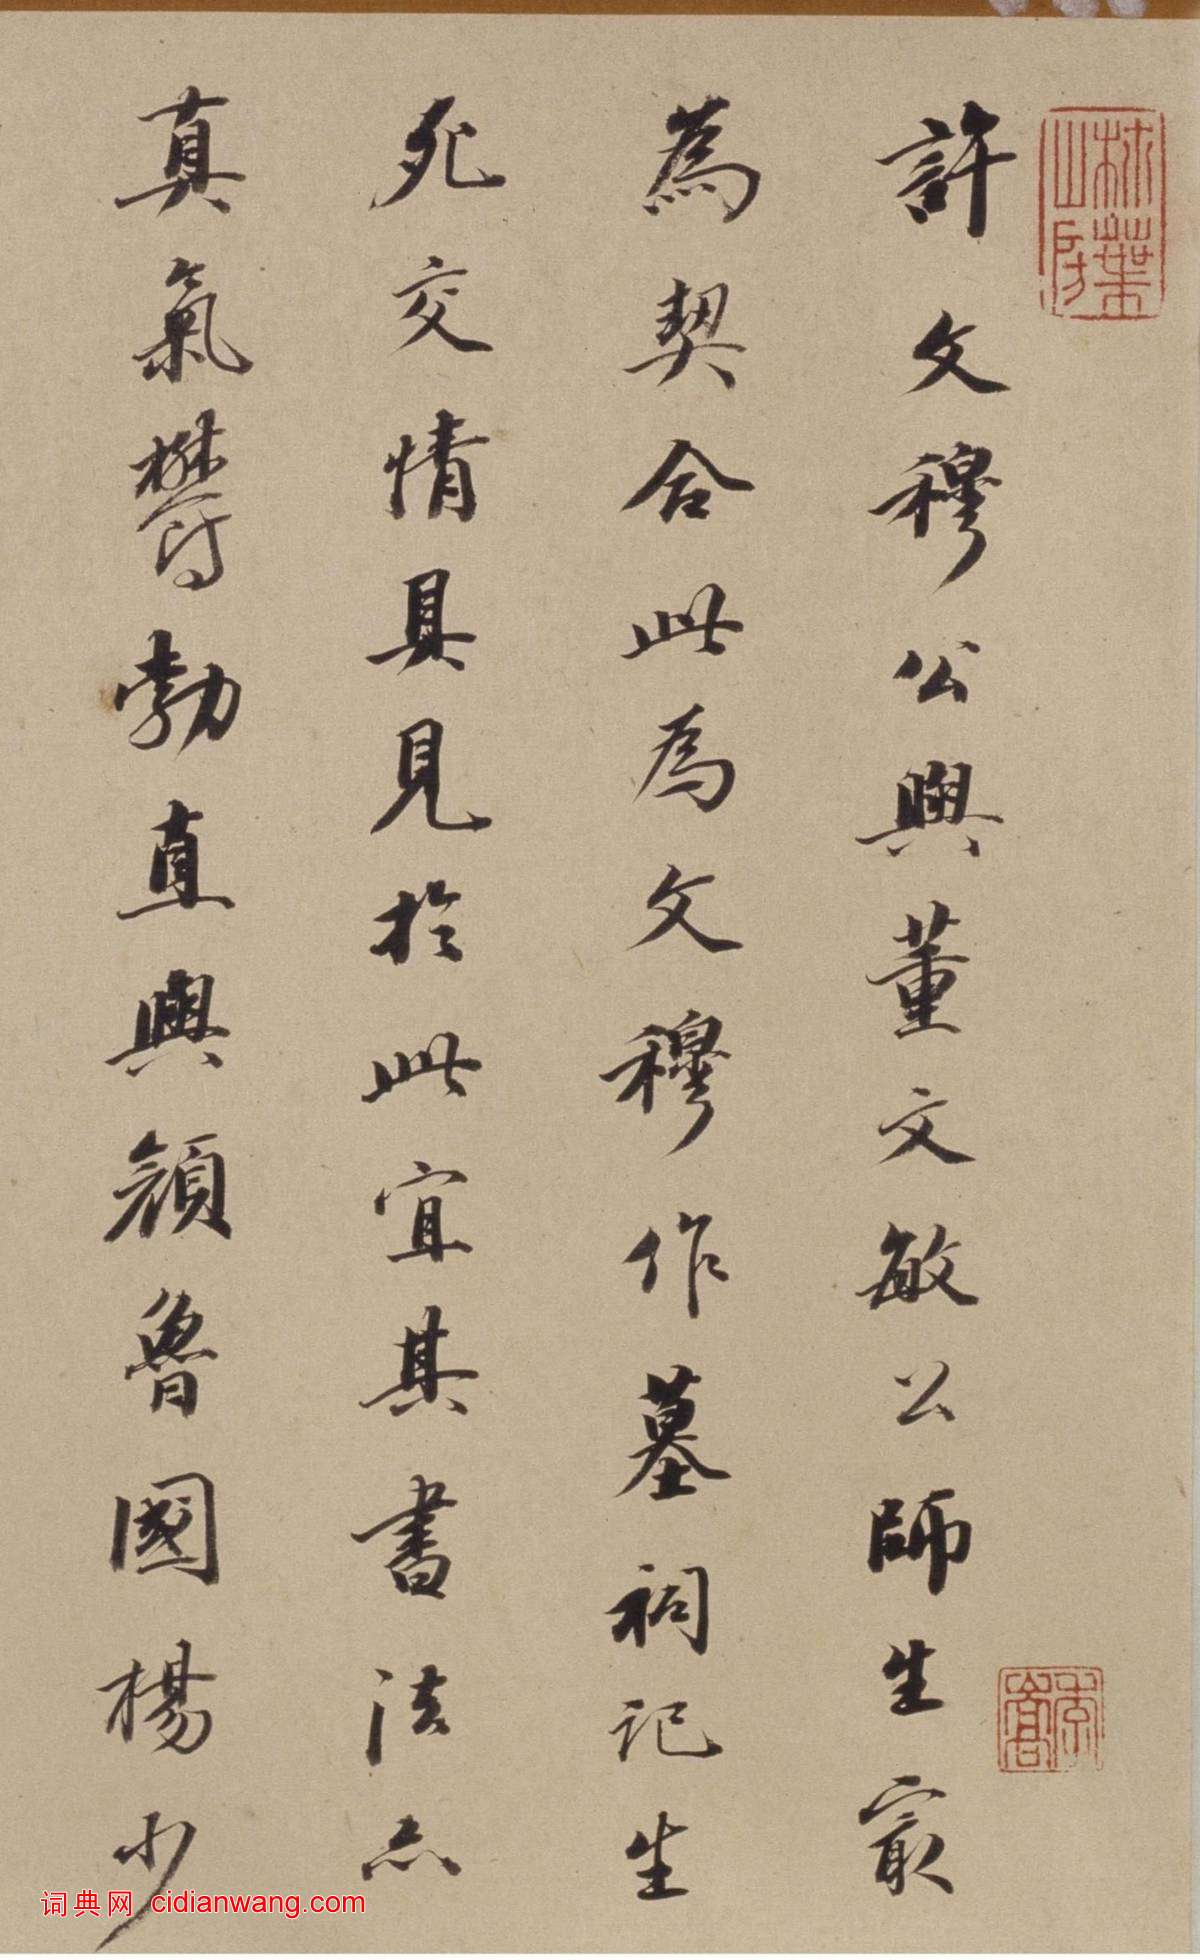 許文穆公與董文敏公師生冣
為契合此為文穆作墓祠記生
死交情具見於此宜其書法亦
真氣欝勃直與顔魯國楊少
林葉山房
词典网 cidianwang.com